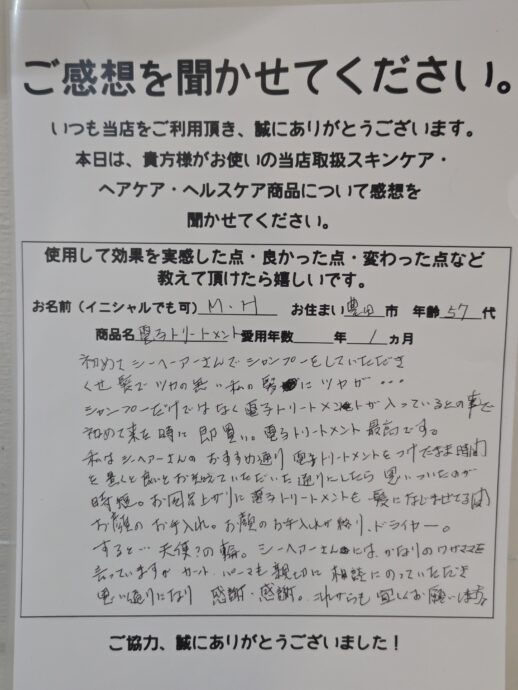 ご感想を聞かせてください。
いつも当店をご利用頂き、誠にありがとうございます。
本日は、貴方様がお使いの当店取扱スキンケア・
ヘアケア・ヘルスケア商品について感想を
聞かせてください。
使用して効果を実感した点・良かった点・変わった点など
教えて頂けたら嬉しいです。
お名前（イニシャルでも可） M・H お住まい 豊田 市 年齢 57 代
商品名 電子トリートメント 愛用年数 年 1 ヵ月
初めてシーヘアーさんでシャンプーをしていただき
くせ髪でツヤの無い私の髪にツヤが・・・
シャンプーだけではなく電子トリートメントが入っているとの事で
初めて来た時に即買い。電子トリートメント最高です。
私はシーヘアーさんのおすすめ通り電子トリートメントをつけたまま時間
を置くと良いとお教えていただいた通りにしたら思いついたのが
時短。お風呂上がりに電子トリートメントを髪になじませてる間
お顔のお手入れ。お顔のお手入れが終り、ドライヤー。
すると…天使?の輪。シーヘアーさんにはかなりのワガママを
言っていますがカット、パーマも親切に相談にのっていただき
思い通りになり 感謝・感謝。これからも宜しくお願いします
ご協力、誠にありがとうございました！